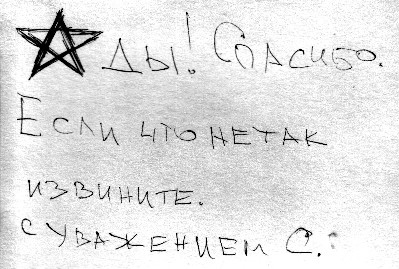 ДЫ! СПАСИБО.
ЕСЛИ ЧТО НЕ ТАК
ИЗВИНИТЕ.
С УВАЖЕНИЕМ С.